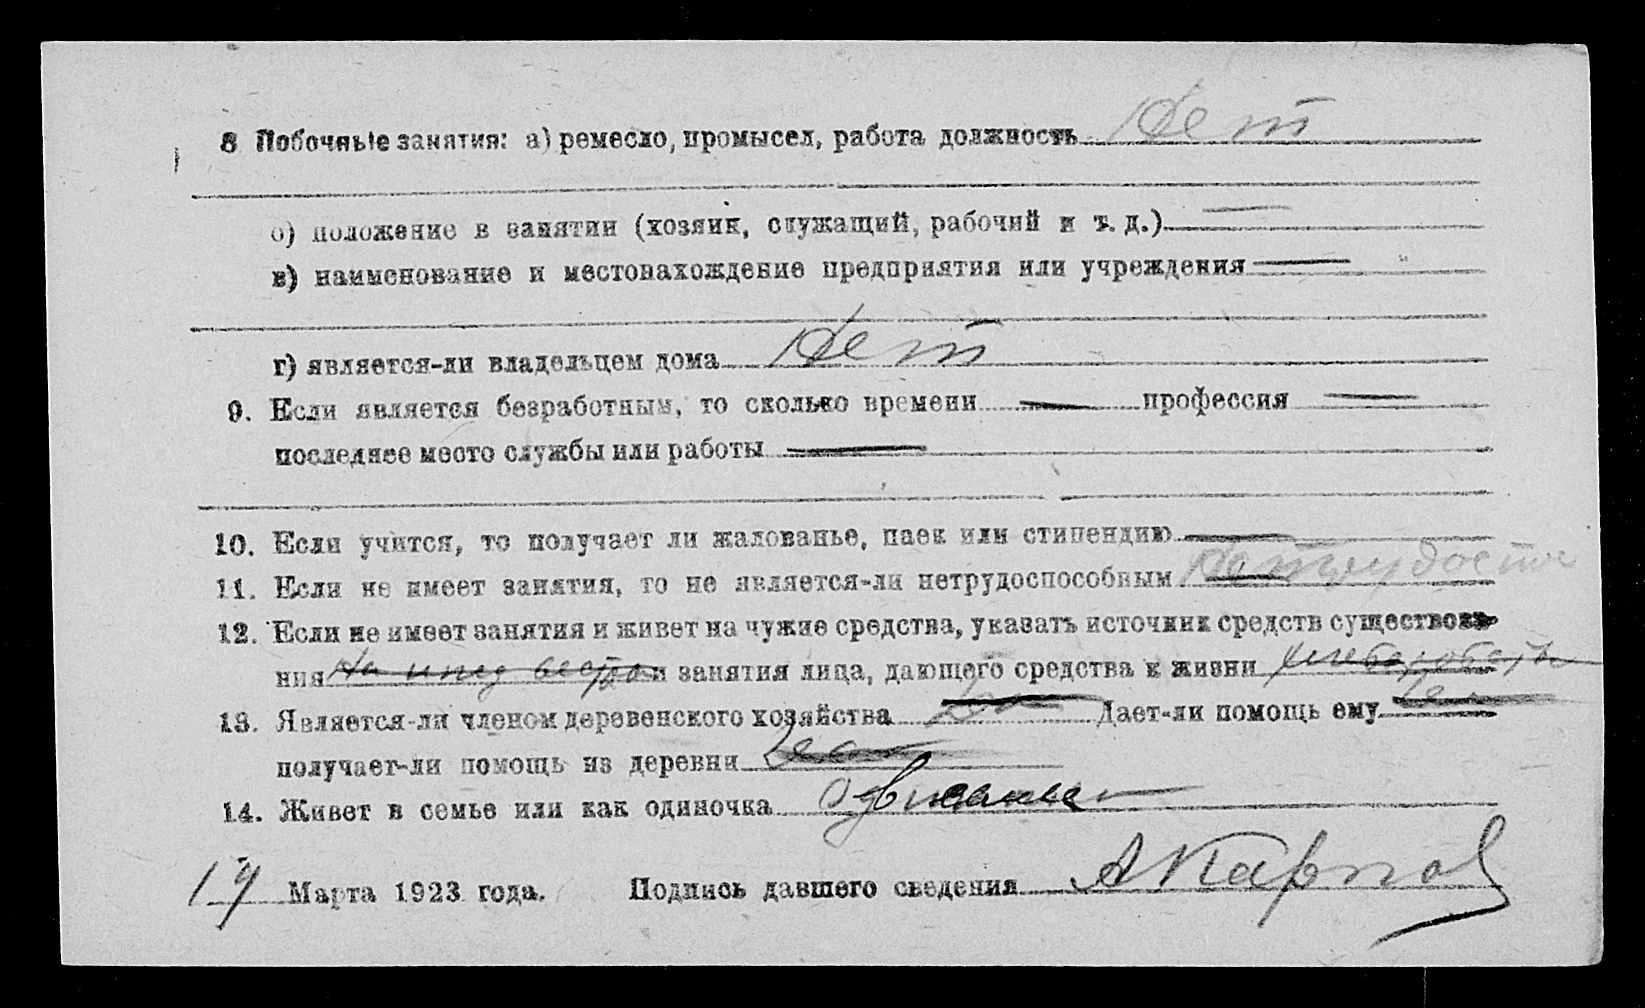 8 Побочные занятия: а) ремесло, промысел, работа должность Нет
б) положение в занятии (хозяин, служащий, рабочий и т. д.) —
в) наименование и местонахождение предприятия или учреждения —
г) является-ли владельцем дома Нет
9. Если является безработным, то сколько времени — профессия —
последнее место службы или работы —
10. Если учится, то получает ли жалованье, паек или стипендию —
11. Если не имеет занятия, то не является-ли нетрудоспособным
12. Если не имеет занятия и живет на чужие средства, указать источник средств существова-
ния и занятия лица, дающего средства к жизни
13. Является-ли членом деревенского хозяйства Дает-ли помощь ему
получает-ли помощь из деревни
14. Живет в семье или как одиночка
Марта 1923 года. Подпись давшего сведения АКарпов